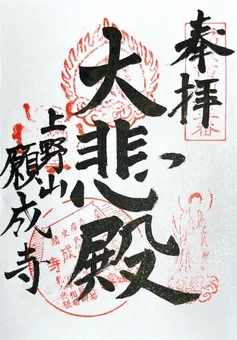 奉拝
大悲殿
上野山
願成寺